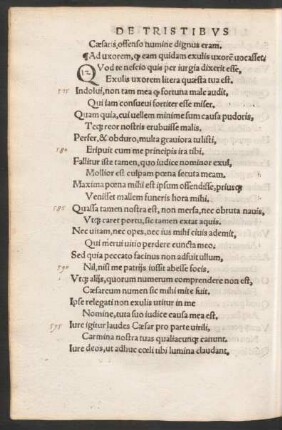 DE TRISTIBVS
Cæsaris, offenso numine dignus eram.
¶Ad uxorem, ꝙ eam quidam exulis uxorē uocasset,
QVod te nescio quis per iurgia dixerit esse,
Exulis uxorem litera quæsta tua est.
Indolui, non tam mea ꝙ fortuna male audit,
Qui iam consueui fortiter esse miser.
Quam quia, cui uellem minime sum causa pudoris,
Teqꝫ reor nostris erubuisse malis.
Perfer, & obduro, multa grauiora tulisti,
140 Eripuit cum me principis ira tibi.
Fallitur iste tamen, quo iudice nominor exul,
Mollior est culpam pœna secuta meam.
Maxima pœna mihi est ipsum offendisse, priusqꝫ
Venisset mallem funeris hora mihi.
Quassa tamen nostra est, non mersa, nec obruta nauis,
Vtqꝫ caret portu, sic tamen extat aquis.
Nec uitam, nec opes, nec ius mihi ciuis ademit,
Qui merui uitio perdere cuncta meo.
Sed quia peccato facinus non adfuit ullum,
Nil, nisi me patrijs iussit abesse focis.
Vtqꝫ alijs, quorum numerum comprendere non est,
Cæsareum numen sic mihi mite fuit.
Ipse relegati non exulis utitur in me
Nomine, tuta suo iudice causa mea est.
Iure igitur laudes Cæsar pro parte uirili,
Carmina nostra tuas qualiacunqꝫ canunt.
Iure deos, ut adhuc cœli tibi lumina claudant,